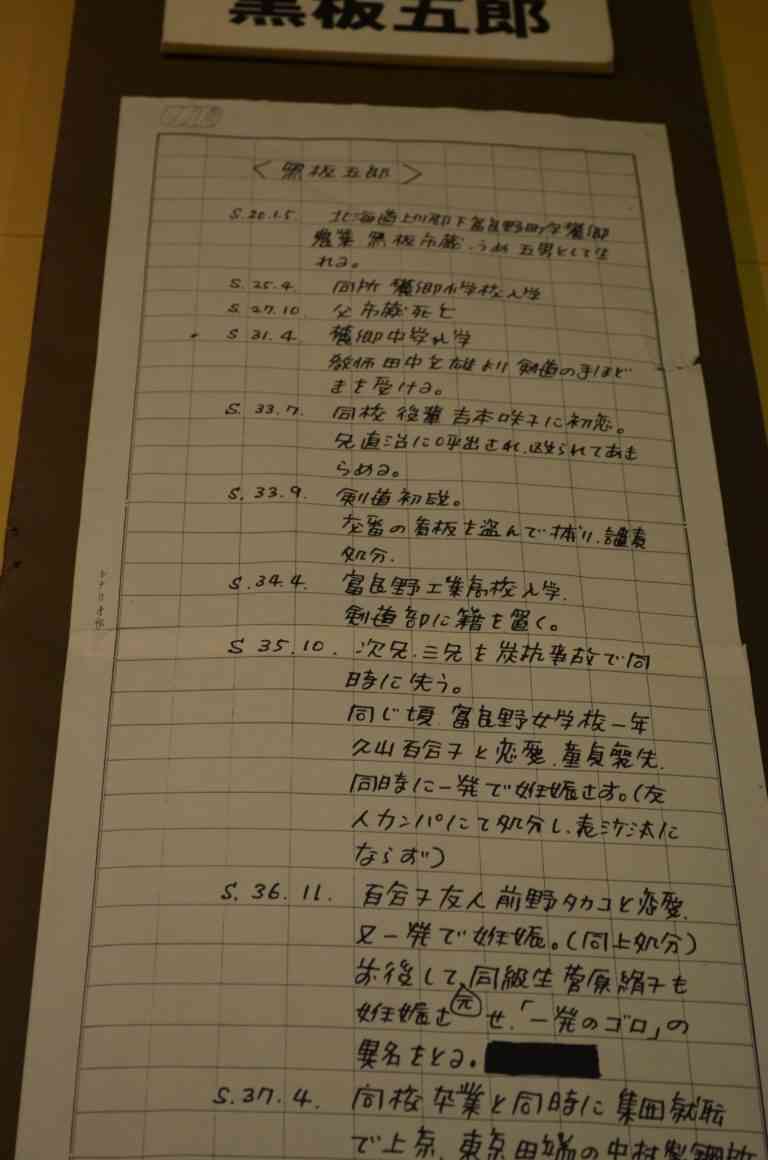 黒板五郎
<黒板五郎>
S.20.1.5 北海道上川郡下富良野町字麓郷
農業 黒板市蔵、うめ 五男として生
れる。
S.25.4. 同所 麓郷小学校入学
S.27.10 父 市蔵死亡
S 31.4. 麓郷中学入学
教師 田中文雄より 剣道の手ほど
きを受ける。
S.33.7. 同校 後輩 吉本咲子に初恋。
兄直治に呼出され、られてあき
らめる。
S.33.9. 剣道初段。
交番の看板を盗んで捕り、譴責
処分.
S.34.4. 富良野工業高校入学.
剣道部に籍を置く。
S 35.10. 次兄.三兄を炭坑事故で同
時に失う。
同じ頃 富良野女学校一年
久山百合子と恋愛.童貞喪失.
同時に一発で妊娠さす。(友
人カンパにて処分し.表沙汰に
ならず)
S.36.11. 百合子友人 前野タカコと恋愛.
又一発で妊娠。(同上処分)
前後して、同級生 菅原絹子も
妊娠させ.「一発のゴロ」の
異名をとる。
S.37.4. 同校卒業と同時に集団就職
で上京、東京田端の中村製